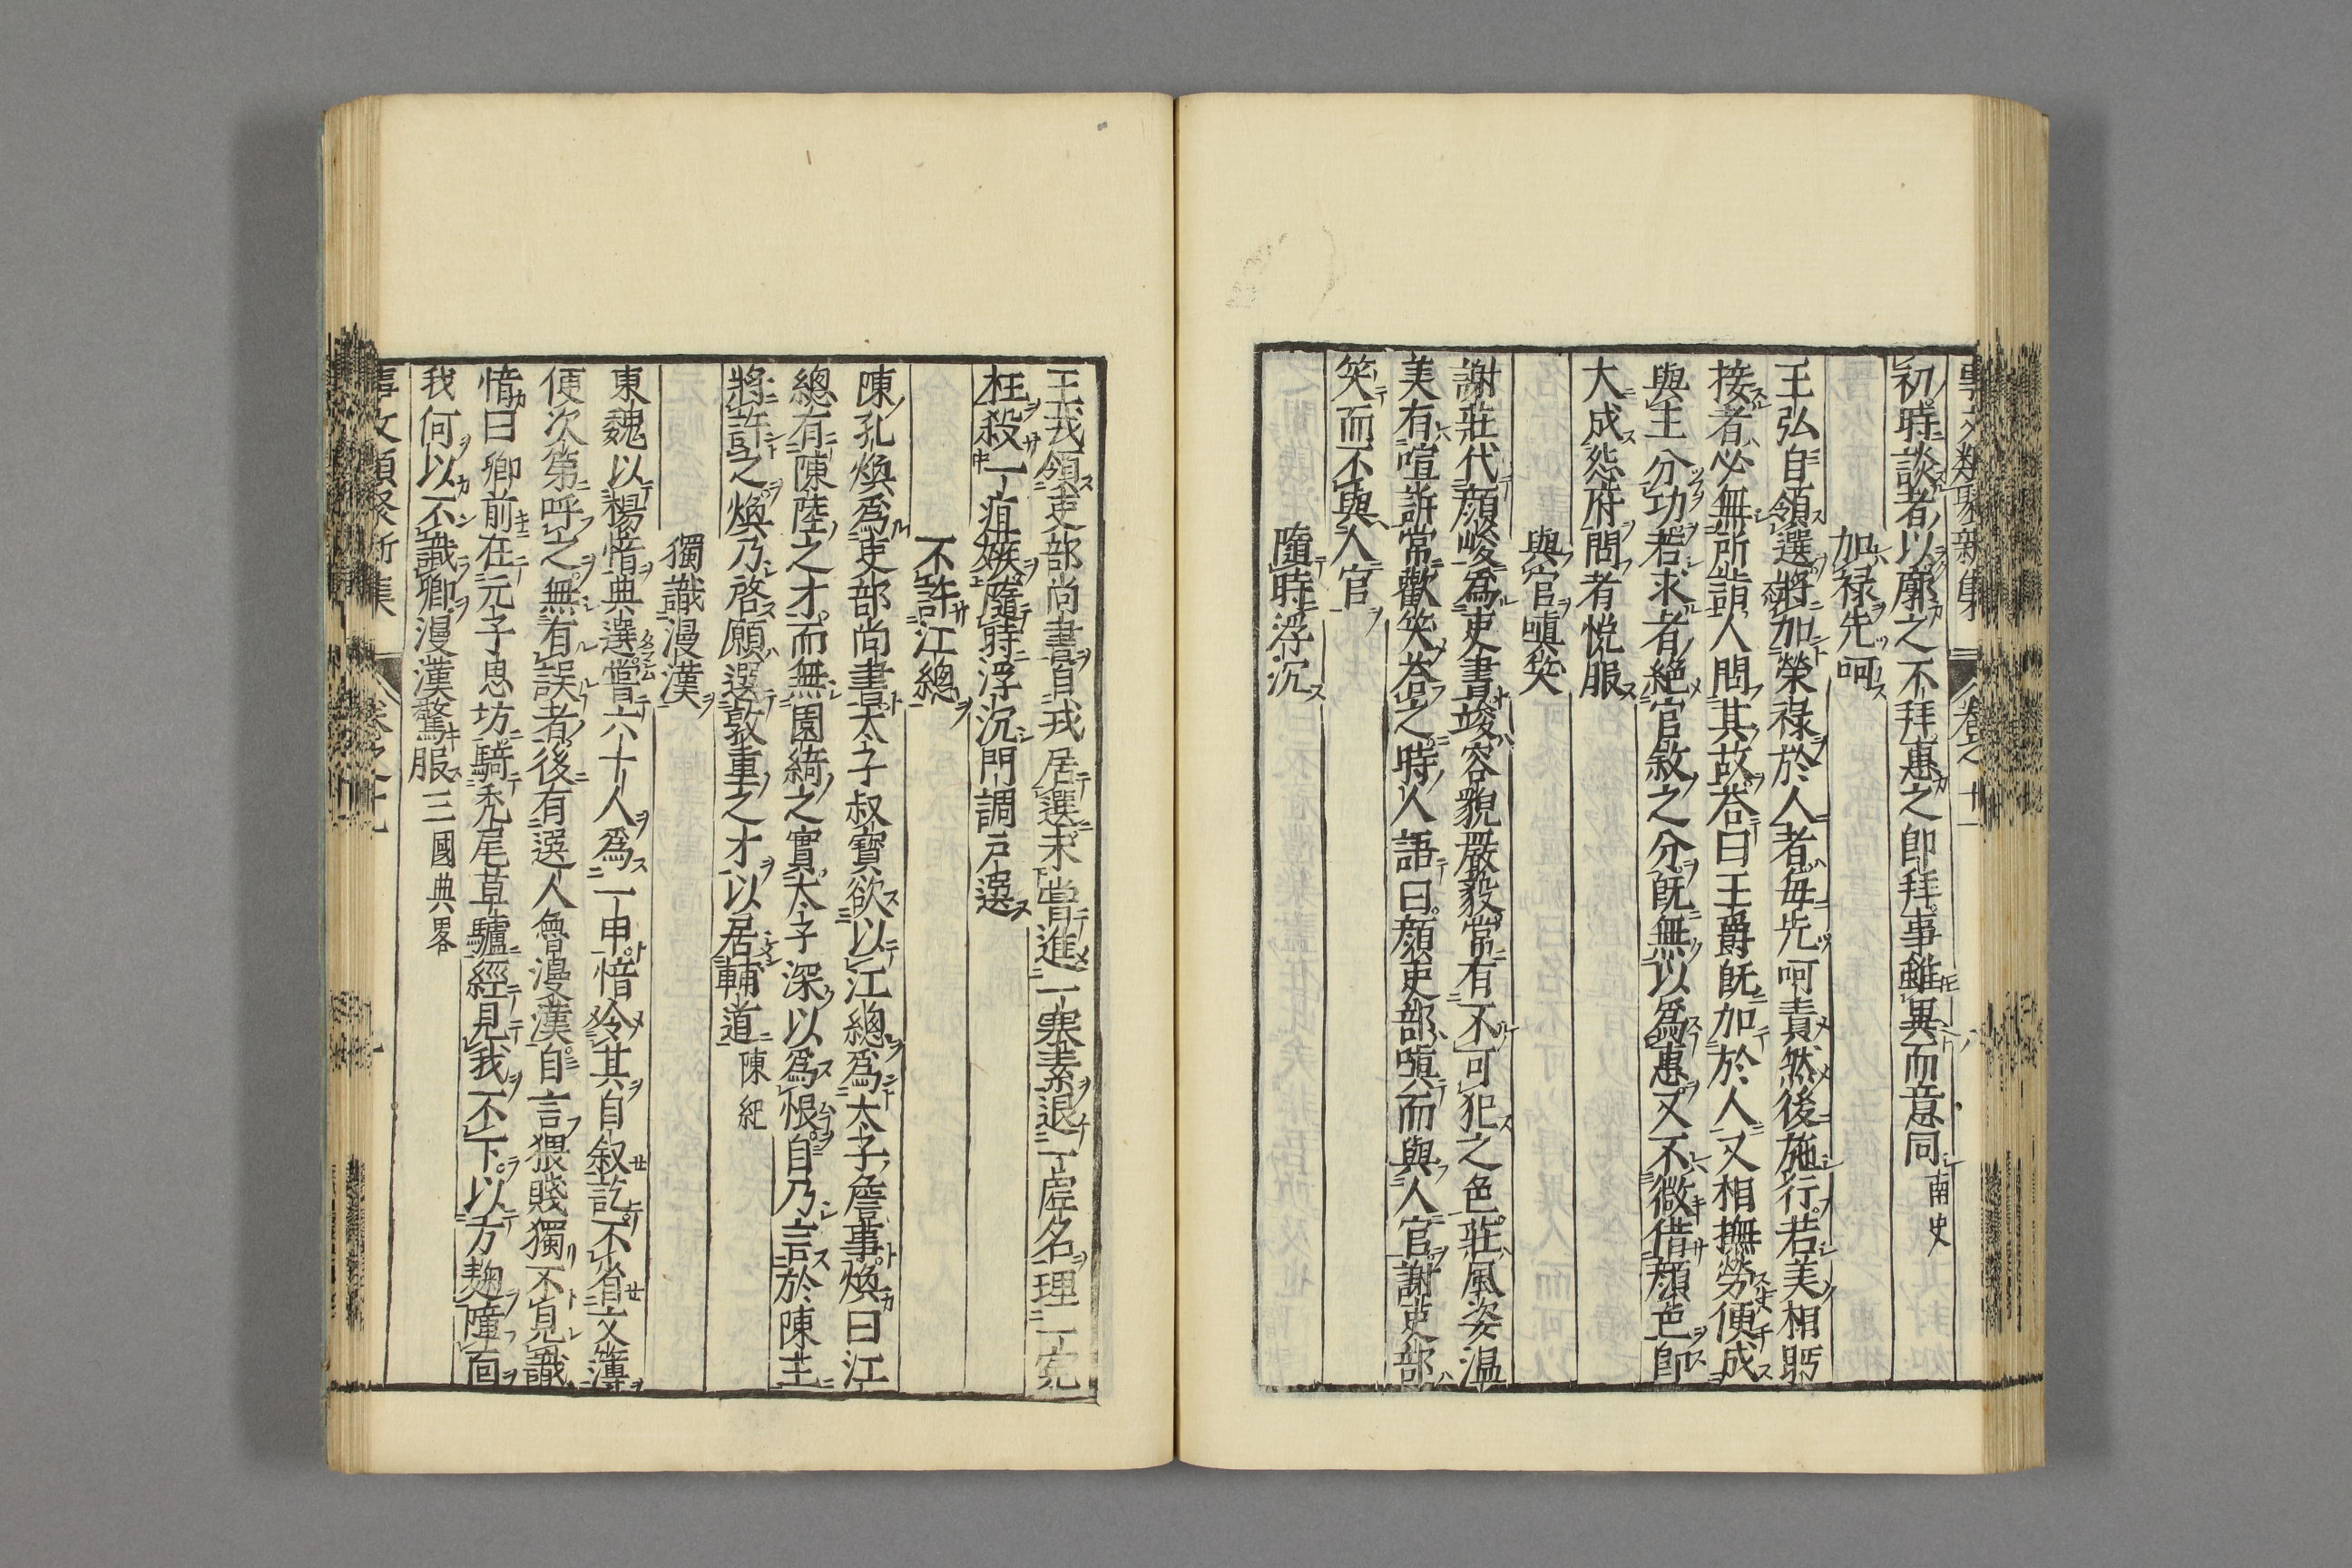 事文類聚新集 卷之十一
初時談者以廓之不拜惠之即拜事雖異而意同南史
加祿先呵
王弘自領選將加榮祿於人者毎先呵責然後施行若美相眄
接者必無所諧人問其故荅曰王爵既加於人又相撫勞便成
與主分功若求者絶官敘之分既無以爲惠又不微借顔色即
大成怨府問者悦服
與官嗔笑
謝莊代顔峻爲吏書竣容貌嚴毅常有不可犯之色莊風姿温
美有喧訴常歡笑荅之時人語曰顔吏部嗔而與人官謝吏部
笑而不與人官
隨時浮沉
王戎領吏部尚書自戎居選未嘗進一寒素退一虚名理一寃
枉殺一疽嫉隨時浮沉門調戸選
不許江總
陳孔煥爲吏部尚書太子叔寶欲以江總爲太子詹事煥曰江
總有陳陸之才而無園綺之實太子深以爲恨自乃言於陳主
將許之煥乃啓願選敦重之才以居輔道陳紀
獨識漫漢
東魏以楊愔典選嘗六十人爲一甲愔令其自敘訖不省文簿
便次第呼之無有誤者後有選人魯漫漢自言猥賤獨不見識
愔曰卿前在元子思坊騎禿尾草驢經見我不下以方麹障面
我何以不識卿漫漢驚服三國典畧
事文類聚新集 卷之十一